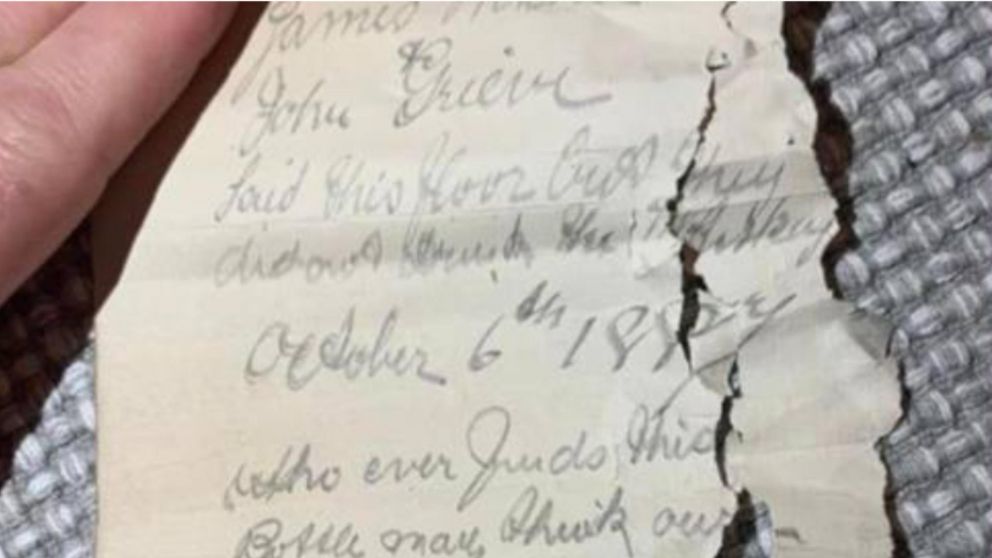 James
& John Grieve
laid this floor but they
did not drink the Whisky
October 6th 1887
who ever finds this
Bottle may think our